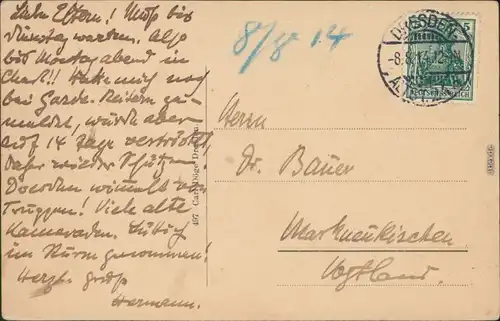 Liebe Eltern! Muß bis
Dienstag warten. Also
bis Montag abend in
Chas!! Hatte mich noch
bei Garde-Reitern ge-
meldet, wurde aber
auf 14 Tage vertröstet,
daher wieder Schütze
Dresden wimmelt von
Truppen! Viele alte
Kameraden. Lüttich
im Sturm genommen!
Herzl. Gruß
Hermann.
8/8 14
DRESDEN
-8.8.14
ALTST.
5
Herrn
Dr. Bauer
Markneukirchen
Vogtland.
497